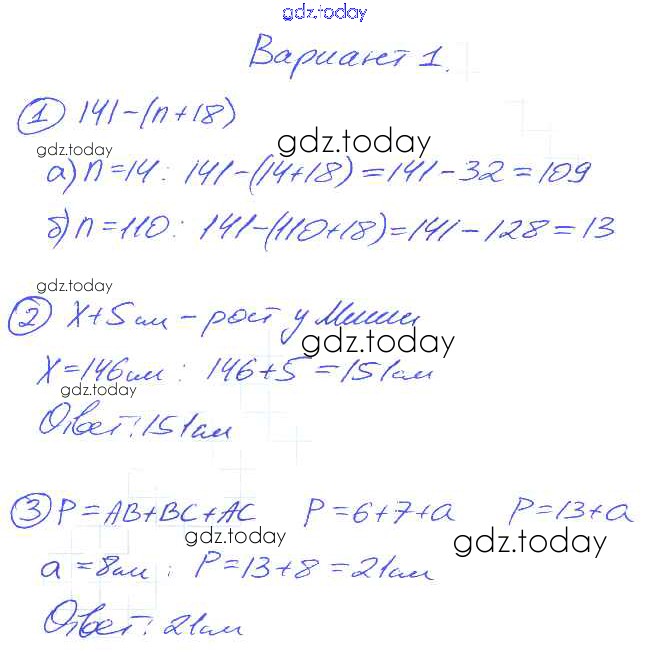 gdz.today
Вариант 1.
1 141-(n+18)
gdz.today
gdz.today
а) n=14: 141-(14+18)=141-32=109
б) n=110: 141-(110+18)=141-128=13
gdz.today
2 x+5см - рост у Миши
gdz.today
x=146см: 146+5=151см
gdz.today
Ответ: 151см
3 P=AB+BC+AC P=6+7+a P=13+a
gdz.today
gdz.today
a=8см: P=13+8=21см
Ответ: 21см